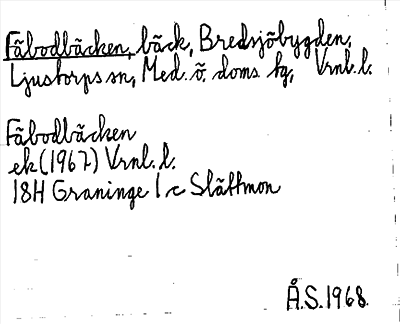 Fäbodbäcken, bäck, Bredsjöbygden,
Ljustorps sn, Med. ö. doms hg, Vrnl. l.
Fäbodbäcken
ek (1967) Vrnl. l.
18H Graninge 1 c Slättmon
Å.S. 1968.